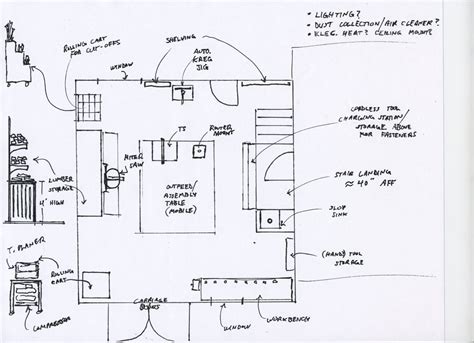 • LIGHTING?
• DUST COLLECTION/AIR CLEANER?
• ELEC. HEAT? CEILING MOUNT?
ROLLING CART
FOR CUT-OFFS
SHELVING
WINDOW
AUTO
KREG
JIG
CORDLESS TOOL
CHARGING STATION/
STORAGE ABOVE
FOR FASTENERS
TS
ROUTER
MOUNT
MITER
SAW
LUMBER
STORAGE
4' HIGH
OUTFEED/
ASSEMBLY
TABLE
(MOBILE)
STAIR LANDING
≈ 40" AFF
SLOP
SINK
T. PLANER
ROLLING
CART
(HAND) TOOL
STORAGE
COMPRESSOR
CARRIAGE
DOORS
WINDOW
WORKBENCH